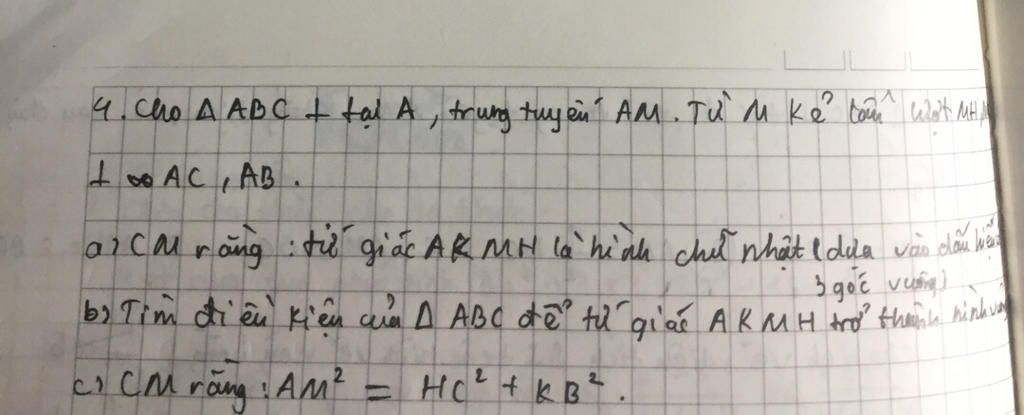 4. Cho Δ ABC ⊥ tại A, trung tuyến AM. Từ M kẻ lần lượt MH,
⊥ AC, AB.
a) CM rằng: tứ giác AKMH là hình chữ nhật (dựa vào dấu hiệu
3 góc vuông)
b) Tìm điều kiện của Δ ABC để tứ giác AKMH trở thành hình vuông
c) CM rằng: AM² = HC² + KB².